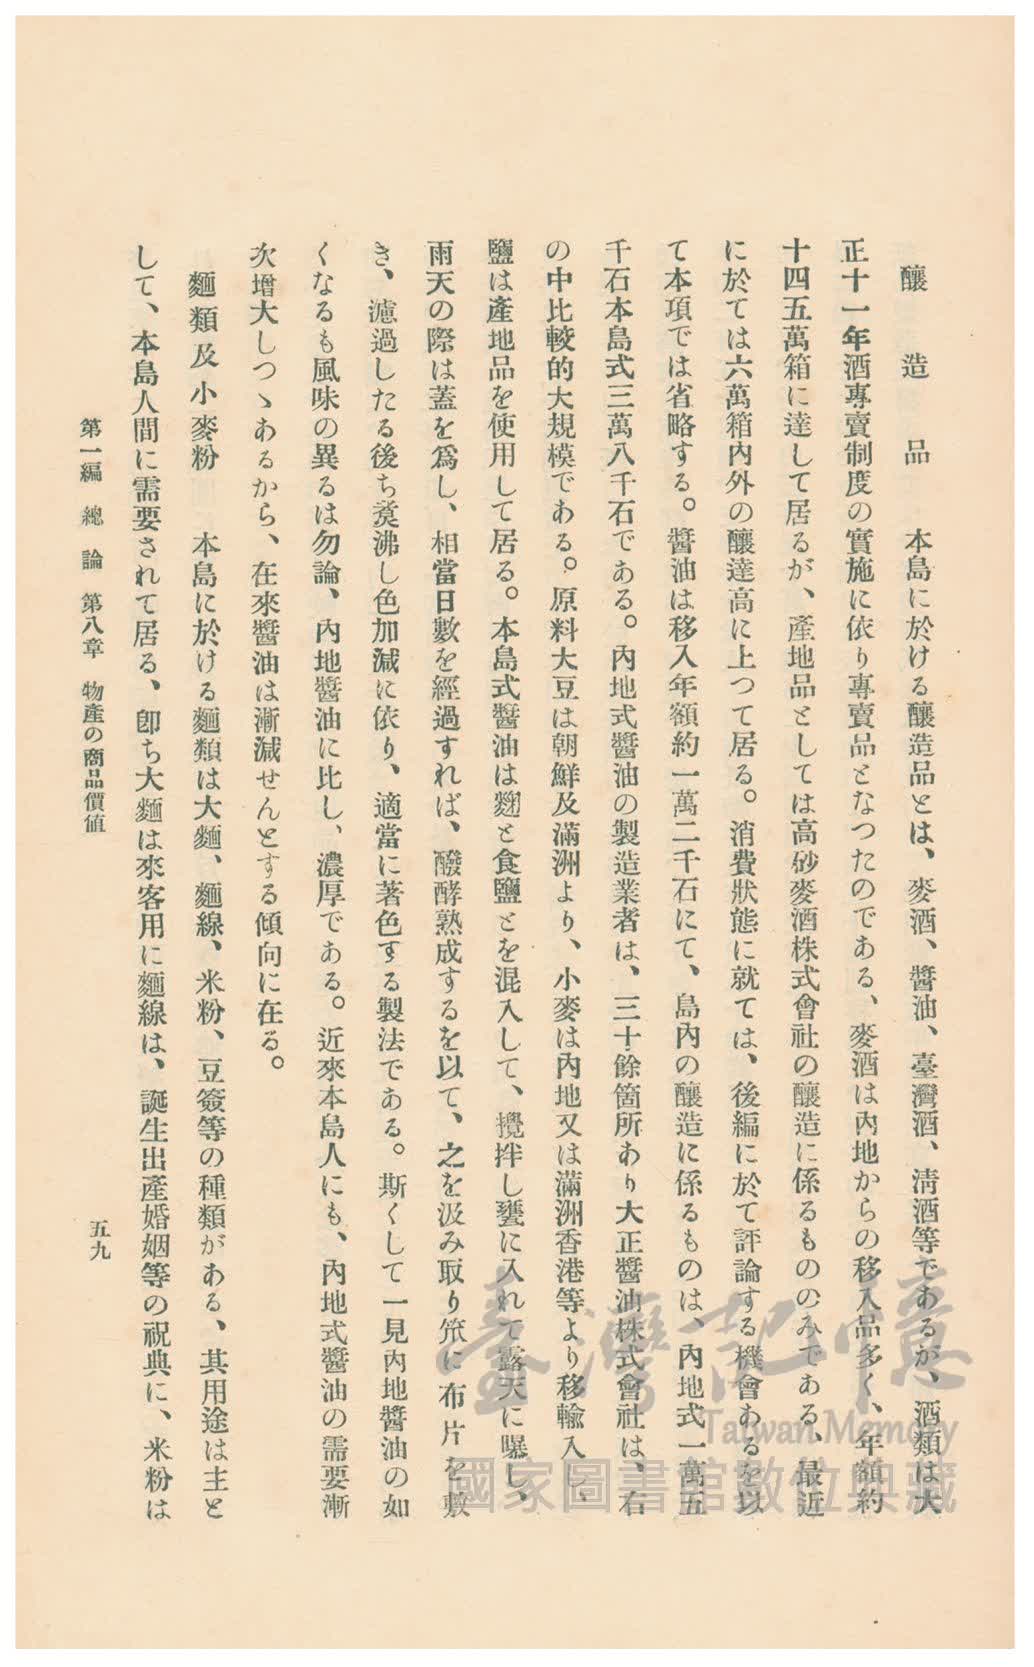 釀造品　本島に於ける釀造品とは、麥酒、醬油、臺灣酒、淸酒等であるが、酒類は大
正十一年酒專賣制度の實施に依り專賣品となつたのである、麥酒は內地からの移入品多く、年額約
十四五萬箱に達して居るが、產地品としては高砂麥酒株式會社の釀造に係るもののみである、最近
に於ては六萬箱內外の釀達高に上つて居る。消費狀態に就ては、後編に於て評論する機會あるを以
て本項では省略する。醬油は移入年額約一萬二千石にて、島內の釀造に係るものは、內地式一萬五
千石本島式三萬八千石である。內地式醬油の製造業者は、三十餘箇所あり大正醬油株式會社は、右
の中比較的大規模である。原料大豆は朝鮮及滿洲より、小麥は內地又は滿洲香港等より移輸入し、
鹽は產地品を使用して居る。本島式醬油は麴と食鹽とを混入して、攪拌し甕に入れて露天に曝し、
雨天の際は蓋を爲し、相當日數を經過すれば、醱酵熟成するを以て、之を汲み取り笊に布片を敷
き、濾過したる後ち煑沸し色加減に依り、適當に著色する製法である。斯くして一見內地醬油の如
くなるも風味の異るは勿論、內地醬油に比し、濃厚である。近來本島人にも、內地式醬油の需要漸
次增大しつゝあるから、在來醬油は漸減せんとする傾向に在る。
麵類及小麥粉　本島に於ける麵類は大麵、麵線、米粉、豆簽等の種類がある、其用途は主と
して、本島人間に需要されて居る、卽ち大麵は來客用に麵線は、誕生出產婚姻等の祝典に、米粉は
第一編　總論　第八章　物產の商品價値
五九
臺灣記憶
Taiwan Memory
國家圖書館數位典藏